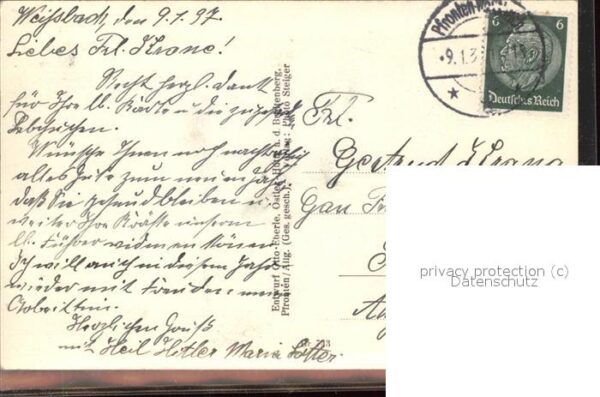 Weissbach, den 9.1.37.
Liebes Frl. Krone!
Recht herzl. Dank
für Ihre lb. Karte u. die
Lebkuchen.
Wünsche Ihnen noch nachträglich
alles Gute zum neuen Jahr
daß Sie gesund bleiben u.
weiter Ihre Kräfte unserm
lb. Führer widmen können
Ich will auch in diesem Jahr
wieder mit Freuden
Herzlichen Gruß
mit Heil Hitler Maria
Entwurf Otto Eberle, Ostler Hütte a. d. Breitenberg.
Pfronten/Allg. (Ges. gesch.) Verlag: Photo Steiger
Pfronten
9.1.3
6 6
Deutsches Reich
Frl.
Gertrud
Gau
privacy protection (c)
Datenschutz